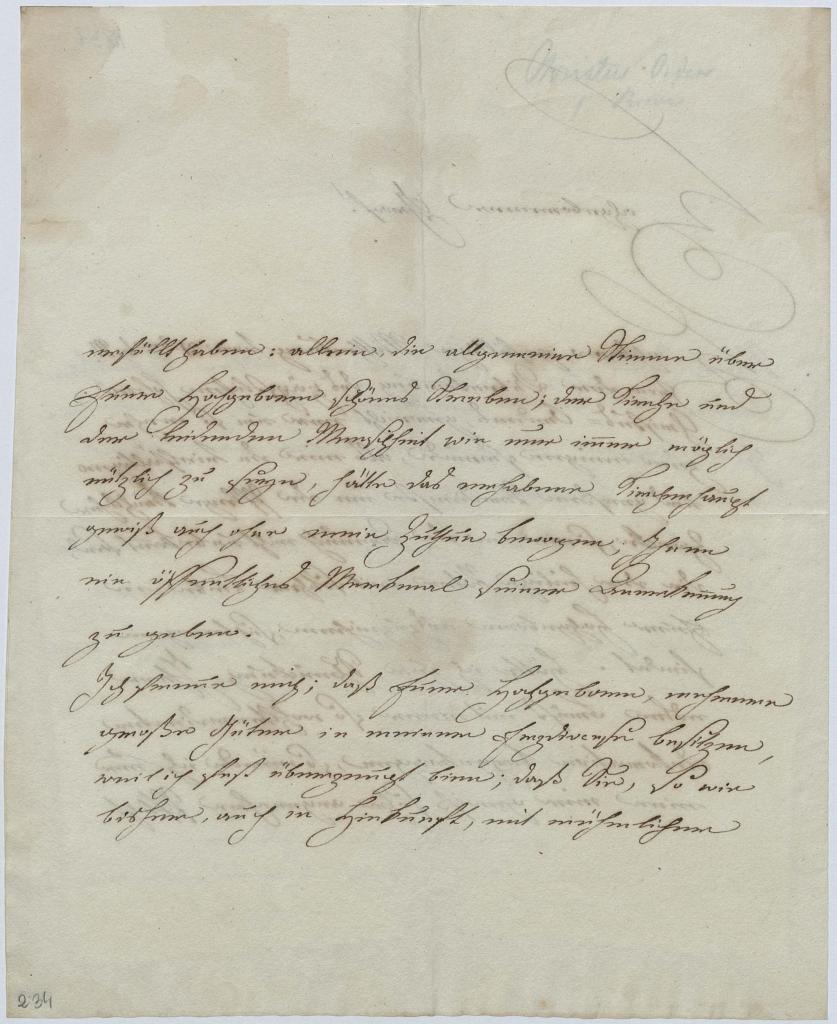 erfüllt haben: allein, die allgemeine Stimme über
Euer Hochgeboren schönes Streben; der Kirche und
der leidenden Menschheit wie nur immer möglich
nützlich zu seyn, hätte das erhabene Kirchenhaupt
gewiß auch ohne mein Zuthun bewogen, Ihnen
ein öffentliches Merkmal seiner Anerkennung
zu geben.
Ich freue mich; daß Euer Hochgeboren, mehrere
große Güter in meiner Erzdiözese besitzen,
weil ich fest überzeugt bin; daß Sie, so wie
bisher, auch in Hinkunft, mit rühmlicher
234